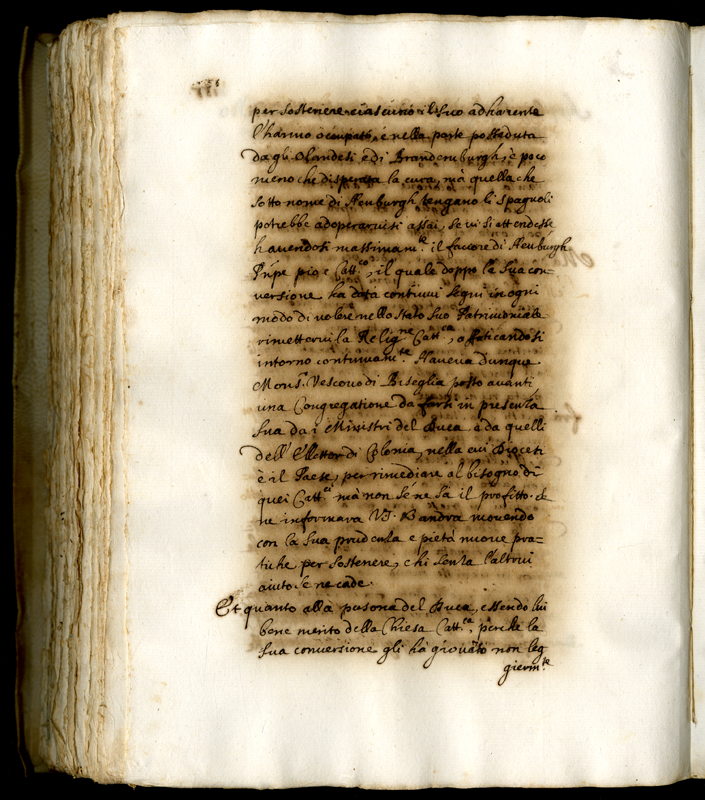 per sostenere ciascuno il suo adherente
l'hanno occupato, e nella parte posseduta
da gli Olandesi e di Brandemburgh, è poco
meno che disperata la cura, mà quella che
sotto nome di Neuburgh tengano li spagnoli
potrebbe adoperarvisi assai, se vi si attendesse
havendosi massimam.te il favore di Neuburgh
Pnpe pio e Catt.co, il quale doppo la sua con=
versione ha dato continui segni in ogni
modo di volere nello stato suo Patrimoniale
rimettervi la Relig.ne Catt.ca, affaticandosi
intorno continuam.te. Haveva dunque
Mons.r Vescovo di Biseglia posto avanti
una Congregatione da farsi in presenza
sua da i Ministri del Duca e da quelli
dell'Elettor di Colonia, nella cui Diocesi
è il Paese, per rimediare al bisogno di
quei Catt.ci mà non se ne sà il profitto. se
ne informarà V.S. & andrà movendo
con la sua prudenza e pietà nuove pra=
tiche per sostenere, chi senza l'altrui
aiuto se ne cade.
Et quanto alla persona del Duca, essendo lui
bene merito della Chiesa Catt.ca, perche la
sua conversione gli hà giovato non leg
gierm.te